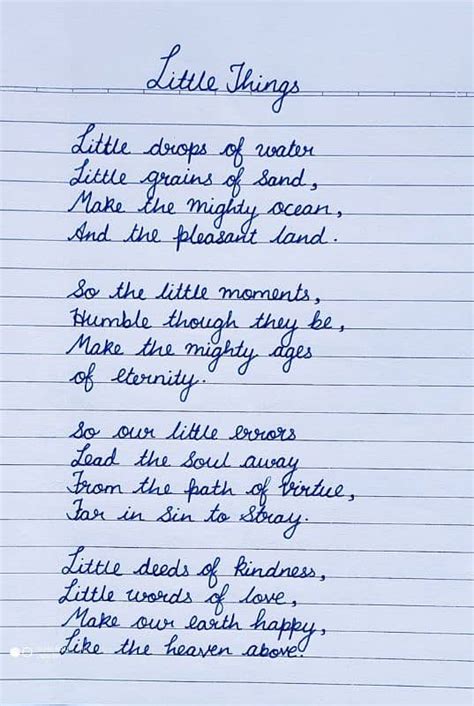 Little Things
Little drops of water
Little grains of sand,
Make the mighty ocean,
And the pleasant land.
So the little moments,
Humble though they be,
Make the mighty ages
of eternity.
So our little errors
Lead the Soul away
From the path of virtue,
Far in Sin to Stray.
Little deeds of kindness,
Little words of love,
Make our earth happy,
Like the heaven above.